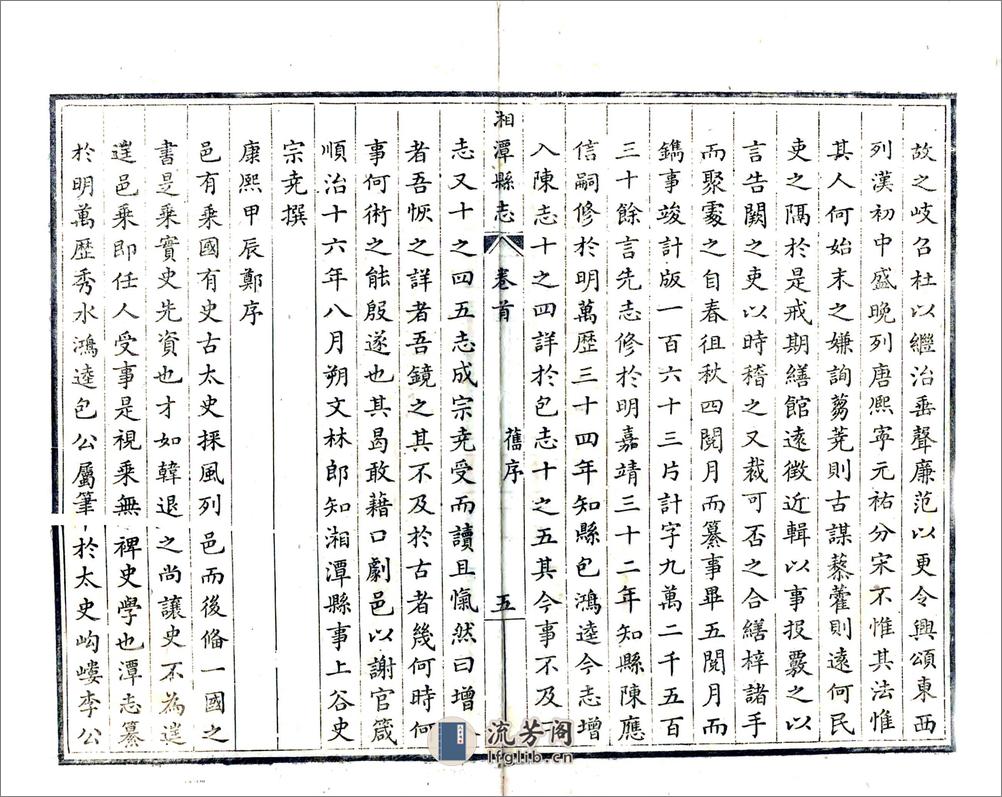 故之岐召杜以繼治垂聲廉范以更令興頌東西
列漢初中盛晚列唐熙寧元祐分宋不惟其法惟
其人何始末之嫌詢芻蕘則古謀藜藿則遠何民
吏之隔於是戒期繕館遠徴近輯以事报覈之以
言告闕之吏以時稽之又裁可否之合繕梓諸手
而聚褭之自春徂秋四閱月而纂事畢五閱月而
鐫事竣計版一百六十三片計字九萬二千五百
三十餘言先志修於明嘉靖三十二年知縣陳應
信嗣修於明萬歷三十四年知縣包鴻逵今志增
入陳志十之四詳於包志十之五其今事不及二
湘潭縣志 卷首 舊序 五
志又十之四五志成宗尭受而讀且愾然曰增
者吾恢之詳者吾鏡之其不及於古者幾何時何
事何術之能殷遂也其曷敢藉口劇邑以謝官箴
順治十六年八月朔文林郎知湘潭縣事上谷史
宗尭撰
康熙甲辰鄭序
邑有乘國有史古太史採風列邑而後俻一國之
書是乘實史先資也才如韓退之尚讓史不為逞
逞邑乘即任人受事是視乘無裨史學也潭志纂
於明萬歷秀水鴻逵包公屬筆於太史岣嶁李公
流芳阁
lfglib.cn